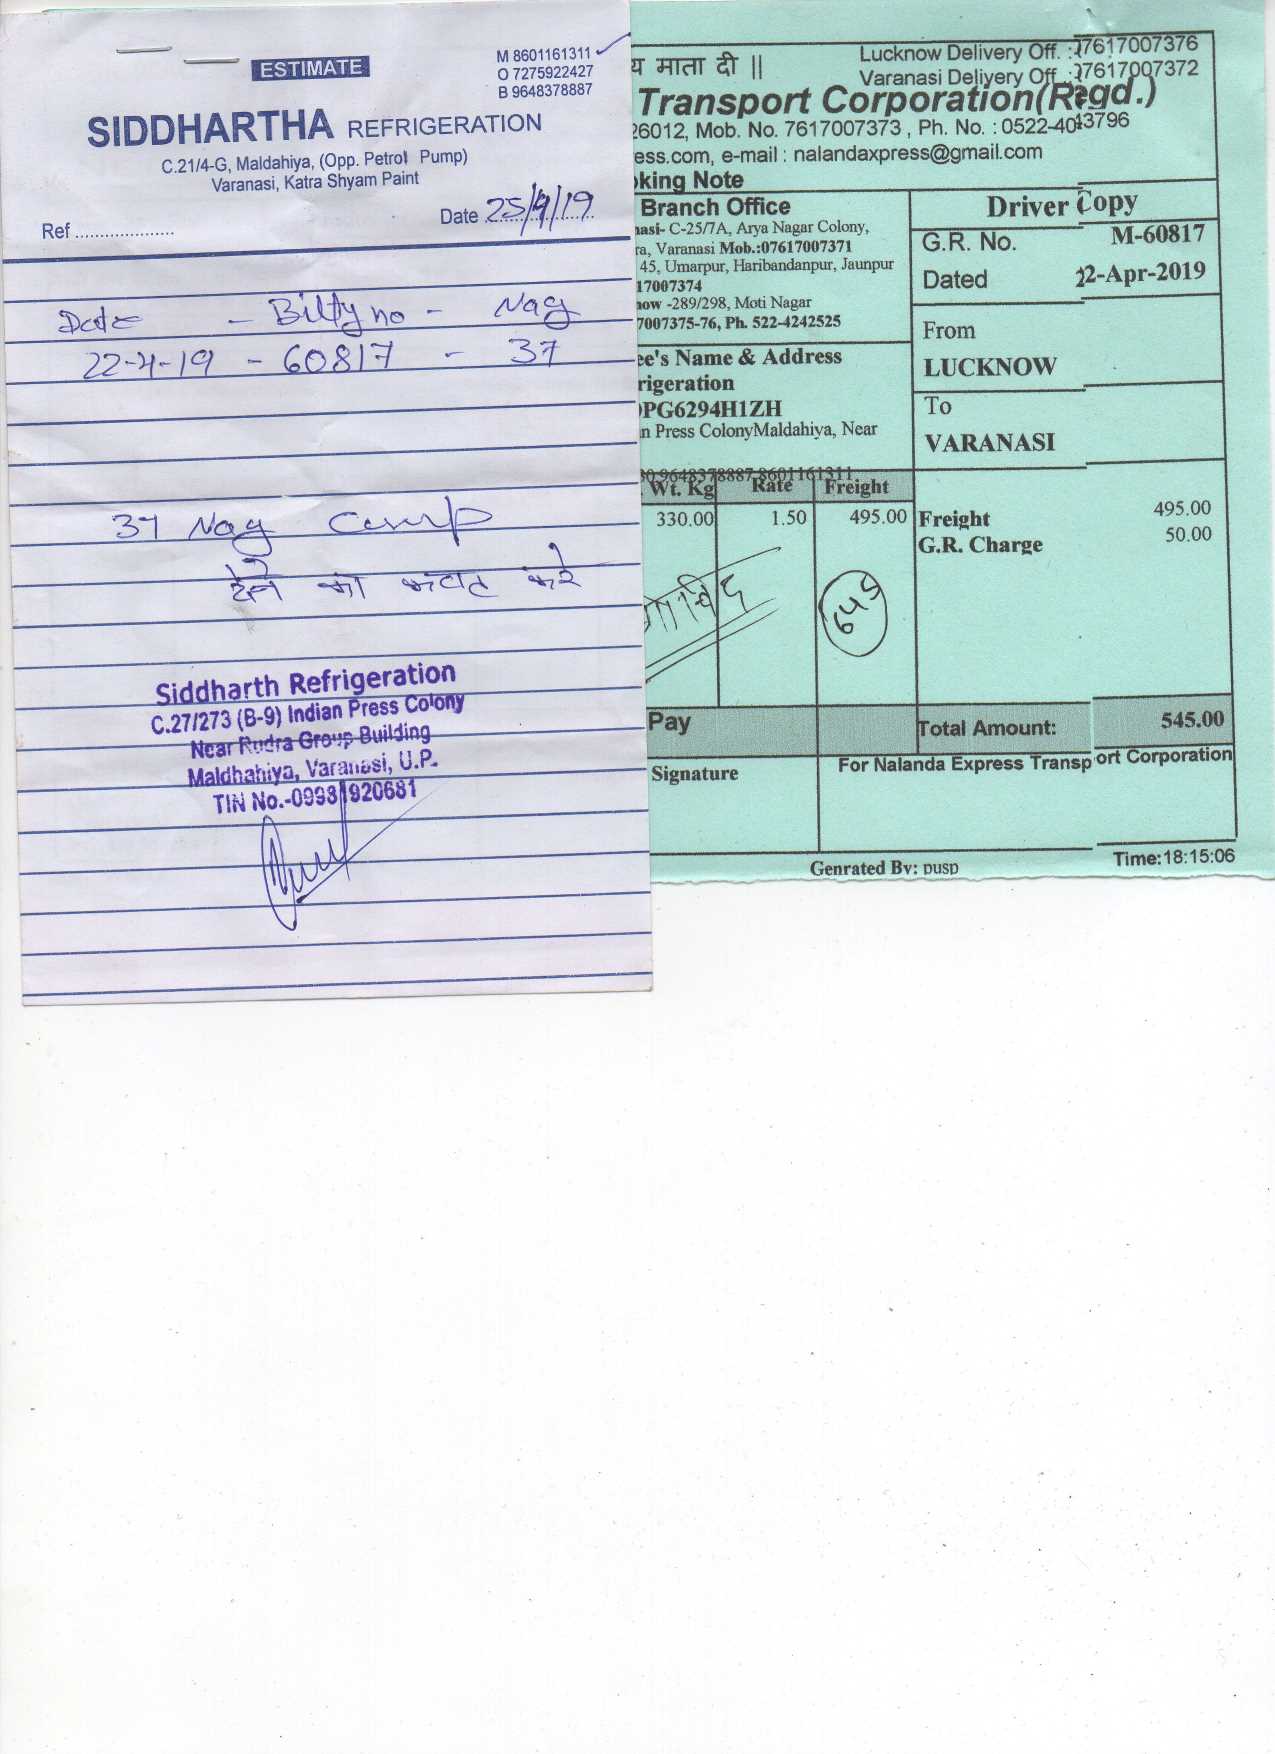 ESTIMATE
M 8601161311
O 7275922427
B 9648378887
SIDDHARTHA REFRIGERATION
C.21/4-G, Maldahiya, (Opp. Petrol Pump)
Varanasi, Katra Shyam Paint
Ref ....................
Date 25/4/19
Date - Bilty no - Nag
22-4-19 - 60817 - 37
37 Nag
देने का कष्ट करे
Siddharth Refrigeration
C.27/273 (B-9) Indian Press Colony
Near Rudra Group Building
Maldhahiya, Varanasi, U.P.
TIN No.-09981920681
Lucknow Delivery Off. :
7617007376
माता दी ||
Varanasi Deliyery Off :
7617007372
Transport Corporation(Regd.)
26012, Mob. No. 7617007373 , Ph. No. : 0522-4043796
ess.com, e-mail : nalandaxpress@gmail.com
king Note
Branch Office
nasi- C-25/7A, Arya Nagar Colony,
ra, Varanasi Mob.:07617007371
45, Umarpur, Haribandanpur, Jaunpur
17007374
now -289/298, Moti Nagar
7007375-76, Ph. 522-4242525
Driver Copy
G.R. No. M-60817
Dated 22-Apr-2019
From
LUCKNOW
To
VARANASI
ee's Name & Address
rigeration
PG6294H1ZH
n Press ColonyMaldahiya, Near
9648378887,8601161311
Wt. Kg Rate Freight
330.00 1.50 495.00
Freight 495.00
G.R. Charge 50.00
645
Pay
Total Amount: 545.00
Signature
For Nalanda Express Transport Corporation
Genrated By: pusp
Time:18:15:06